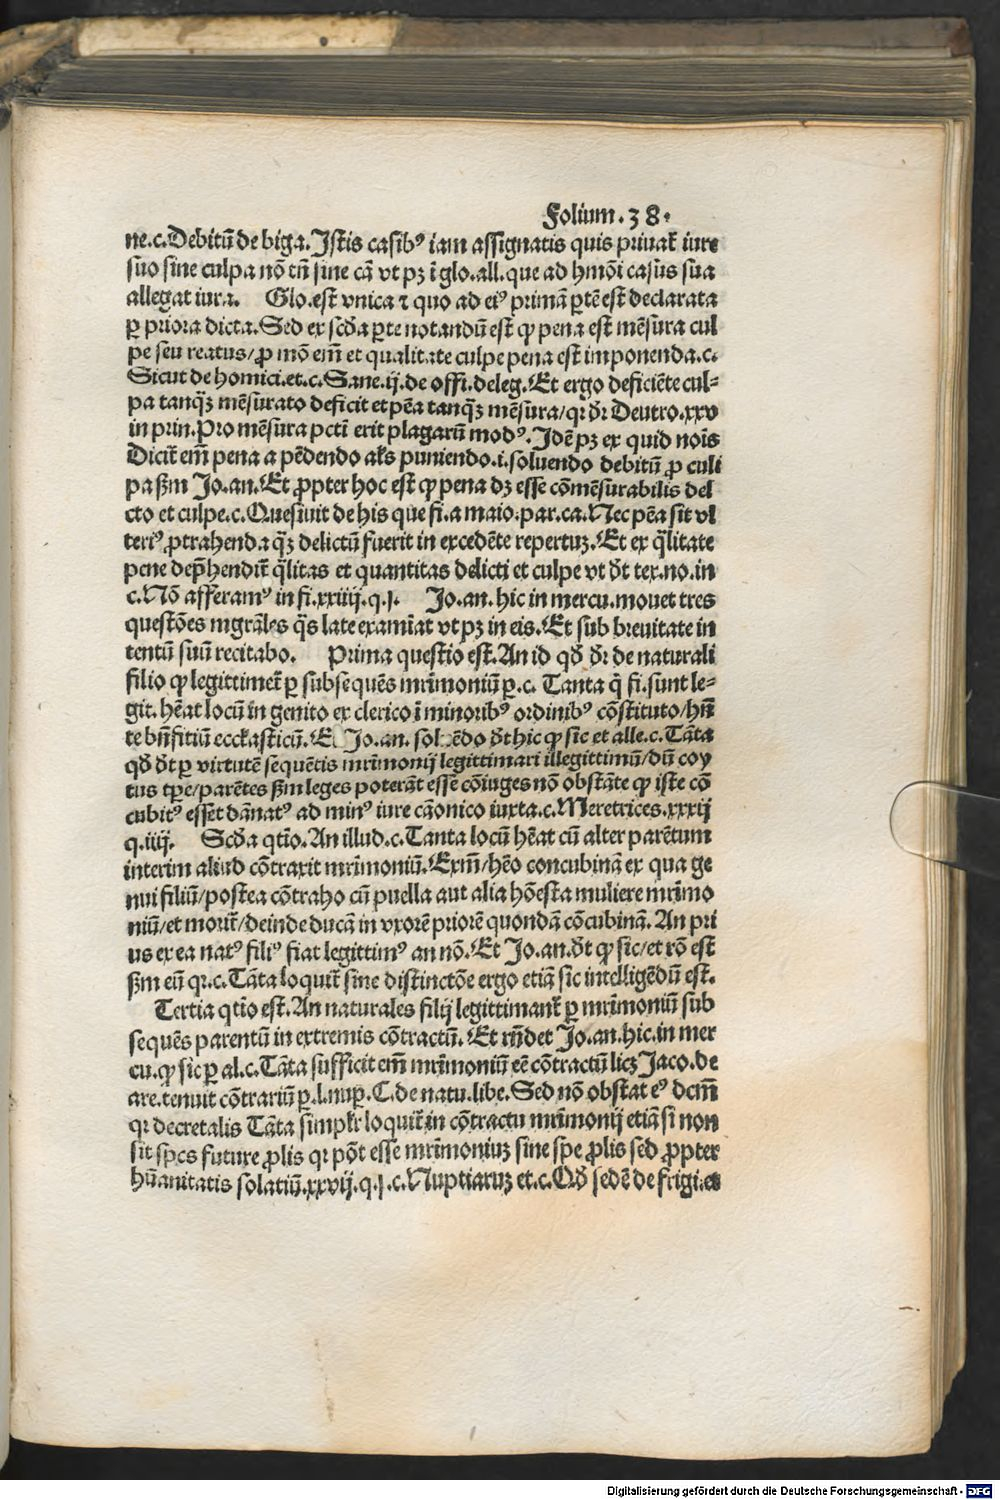 Folium.38.
ne.c.Debitū de biga.Istis casibꝰ iam assignatis quis priuat̄ iure
suo sine culpa nō tn̄ sine cā vt pꝫ ī glo.all.que ad hmōi casus sua
allegat iura. Glo.est vnica ⁊ quo ad eiꝰ primā ꝑtē est declarata
ꝑ priora dicta.Sed ex scđa ꝑte notandū est ꝙ pena est mēsura cul
pe seu reatus/ꝓ mō em̄ et qualitate culpe pena est imponenda.c.
Sicut de homici.et.c.Sane.ij.de offi.deleg.Et ergo deficiēte cul⸗
pa tanꝙꝫ mēsurato deficit et pēa tanꝙꝫ mēsura/qꝛ dr̄ Deutro.xxv
in prin.Pro mēsura pcti erit plagarū modꝰ.Idē pꝫ ex quid nois
Dicit̄ em̄ pena a pēdendo als puniendo.i.soluendo debitū ꝓ culi
pa ẜm Jo.an.Et ꝓpter hoc est ꝙ pena dꝫ esse cōmēsurabilis del
cto et culpe.c.Quesiuit de his que fi.a maio.par.ca.Nec pēa sit vl
teriꝰ ꝓtrahenda ꝙꝫ delictū fuerit in excedēte repertuꝫ.Et ex q̄litate
pene dep̄hendit̄ q̄litas et quantitas delicti et culpe vt dt̄ tex.no.in
c.Nō afferamꝰ in fi.xxiiij.q.j. Jo.an.hic in mercu.mouet tres
questōes mgrāles q̄s late examīat vt pꝫ in eis.Et sub breuitate in
tentū suū recitabo. Prima questio est.An id qđ dr̄ de naturali
filio ꝙ legittimet̄ ꝑ subsequēs mr̄imoniū ꝑ.c. Tanta q̄ fi.sunt le⸗
git.hēat locū in genito ex clerico ī minoribꝰ ordinibꝰ cōstituto/hn̄
te bn̄fitiū eccłasticū. Jo.an. dt̄ hic ꝙ sic et alle.c.Tāta
qđ dt̄ ꝑ virtutē sequētis mr̄imonij legittimari illegittimū/dū coy
tus tꝑe/parētes ẜm leges poterāt esse cōiuges nō obstāte ꝙ iste cō
cubitꝰ esset dānatꝰ ad minꝰ iure cānonico iuxta.c.Meretrices.xxxij
q.iiij. Scđa qtio.An illud.c.Tanta locū hēat cū alter parētum
interim aliud cōtraxit mr̄imoniū.Exm̄/hēo concubinā ex qua ge
nui filiū/postea cōtraho cū puella aut alia hōesta muliere mr̄imo
niū/et morit̄/deinde ducā in vxorē priorē quondā cōcubinā. An pri
us ex ea natꝰ filiꝰ fiat legittimꝰ an nō.Et Jo.an.dt̄ ꝙ sic/et rō est
ẜm eū qꝛ.c.Tāta loquit̄ sine distinctōe ergo etiā sic intelligēdū est.
Tertia qtio est.An naturales filij legittimant̄ ꝑ mr̄imoniū sub
sequēs parentū in extremis cōtractū. Et rn̄det Jo.an.hic.in mer
cu.ꝙ sic ꝑ al.c.Tāta sufficit em̄ mr̄imoniū eē cōtractū licꝫ Jaco.de
are.tenuit cōtrariū ꝑ.l.nuꝑ.C.de natu.libe.Sed nō obstat eꝰ dcm̄
qꝛ decretalis Tāta simplr̄ loquit̄ in cōtractu mr̄imonij etiā si non
sit spes future ꝓlis qꝛ pōt esse mr̄imoniuꝫ sine spe ꝓlis sed ꝓpter
hūanitatis solatiū.xxvij.q.j.c.Nuptiaruꝫ et.c.Qđ sedē de frigi.et
Digitalisierung gefördert durch die Deutsche Forschungsgemeinschaft - DFG